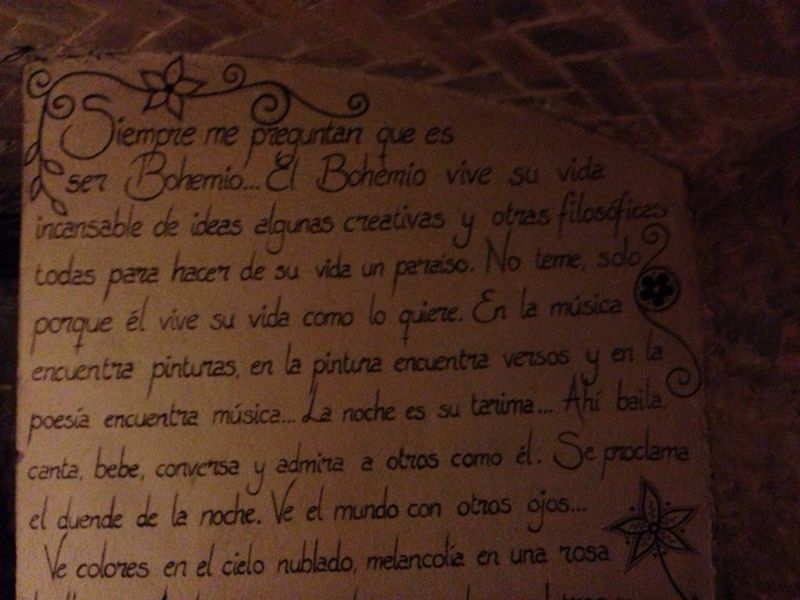 Siempre me preguntan que es
ser Bohemio... El Bohemio vive su vida
incansable de ideas algunas creativas y otras filosóficas
todas para hacer de su vida un paraíso. No teme, solo
porque él vive su vida como lo quiere. En la música
encuentra pinturas, en la pintura encuentra versos y en la
poesía encuentra música... La noche es su tarima... Ahí baila,
canta, bebe, conversa y admira a otros como él. Se proclama
el duende de la noche. Ve el mundo con otros ojos...
Ve colores en el cielo nublado, melancolía en una rosa